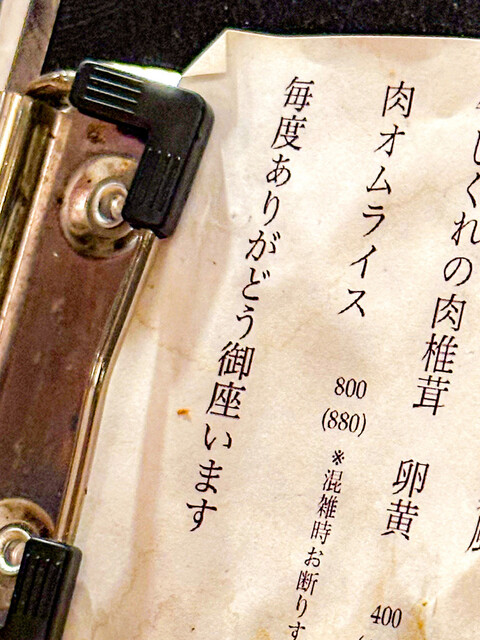 しぐれの肉椎茸
卵黄
400
肉オムライス
800
(880)
※混雑時お断りす
毎度ありがどう御座います